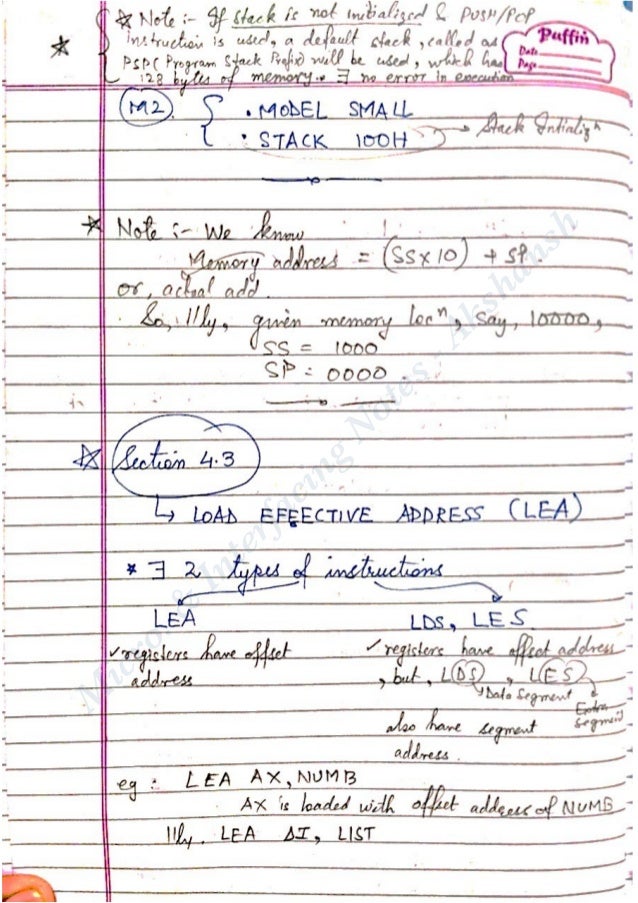 ☆ Note :- If Stack is not initialized & PUSH/POP
instruction is used, a default stack, called as
PSP( Program Stack Prefix) will be used, which has
128 bytes of memory. ∃ no error in execution
Puffin
Date
Page
M2. { .MODEL SMALL
.STACK 100H → Stack Initializⁿ
☆ Note :- We know
Memory address = (SS×10) + SP.
or, actual add.
So, ||ly, given memory locⁿ, say, 10000,
SS = 1000
SP = 0000.
☆ Section 4.3
↳ LOAD EFFECTIVE ADDRESS (LEA)
* ∃ 2 types of instructions
LEA LDS, LES.
✓ registers have offset address
✓ registers have offset address
, but, LDS, LES
Data Segment
Extra Segment
also have segment
address.
eg : LEA AX, NUMB
AX is loaded with offset address of NUMB
||ly. LEA DI, LIST
Micro & Interfacing Notes - Akshansh